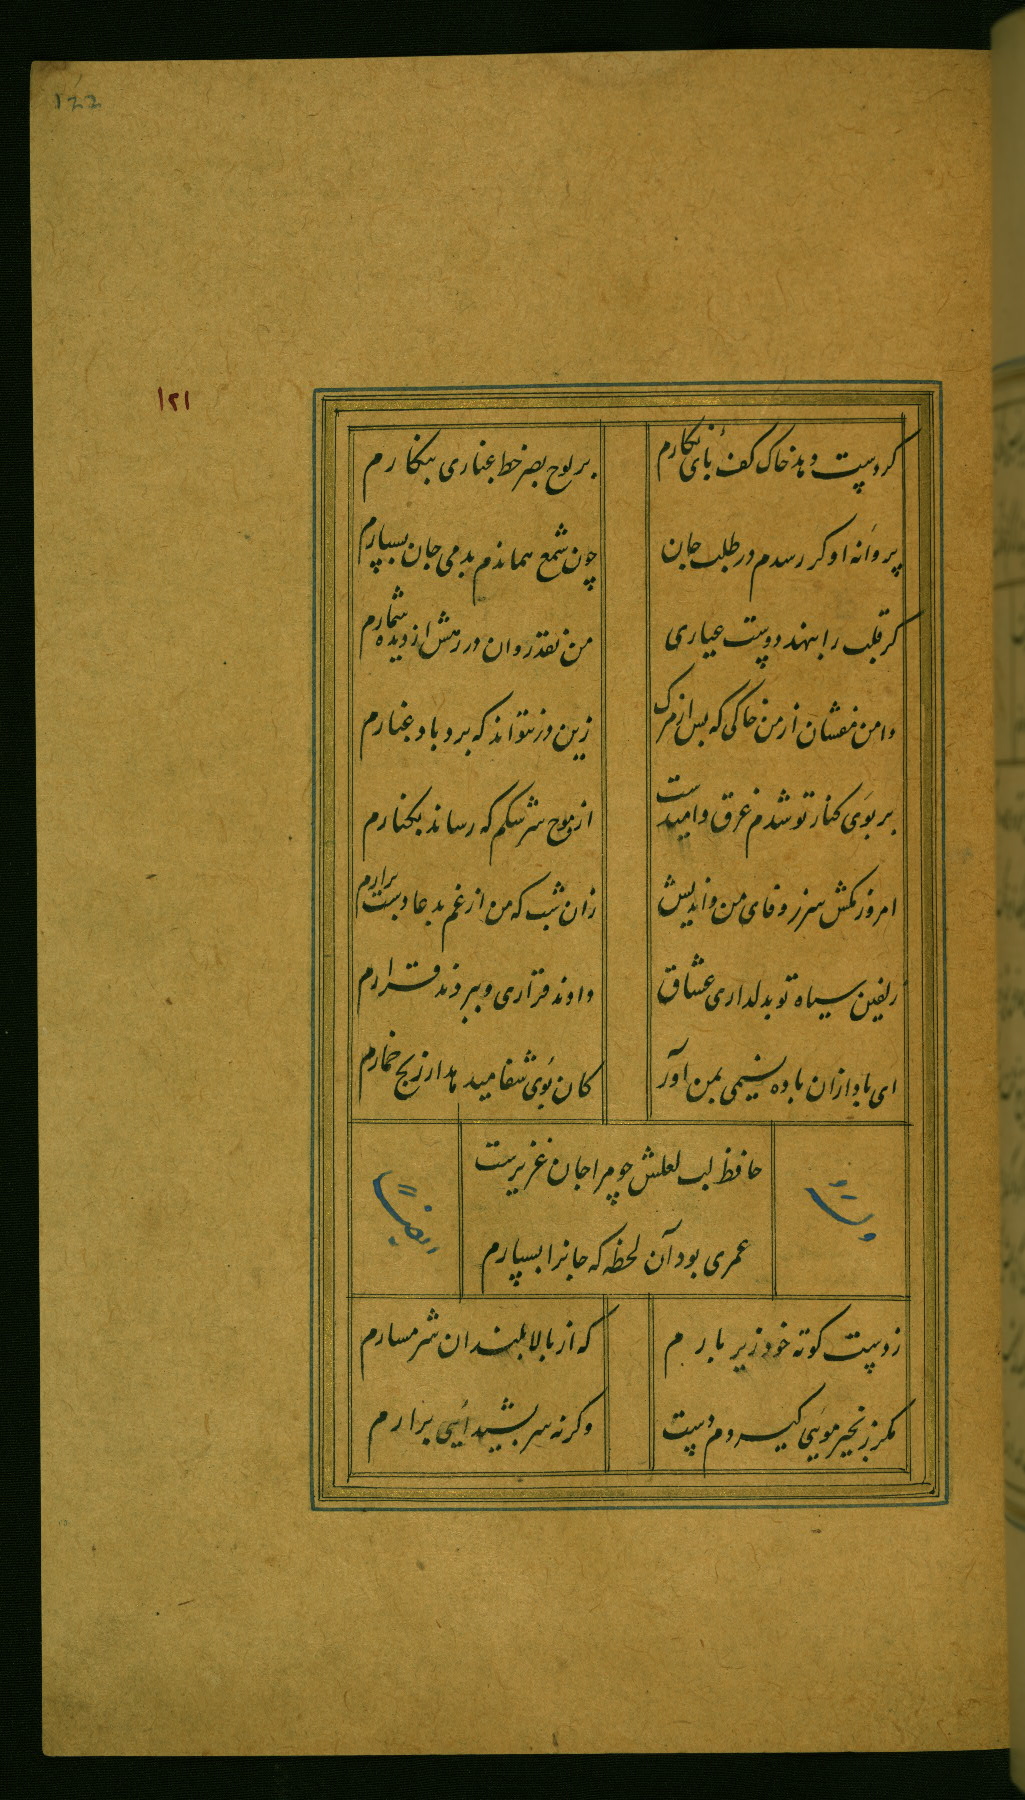 ۱۲۲
۱۲۱
کر دست دهد خاک کف پای نکارم
بر لوح بصر خط غباری بنکارم
پروانه او کر رسدم در طلب جان
چون شمع هماندم بدمی جان بسپارم
کر قلب را ننهد دوست عیاری
من نقد روان در رهش از دیده شمارم
دامن مفشان از من خاکی که پس از مرک
زین در نتواند که برد باد غبارم
بر بوی کنار تو شدم غرق و امیدست
از موج سرشکم که رساند بکنارم
امروز مکش سر ز وفای من و اندیش
زان شب که من از غم بدعا دست برارم
زلفین سیاه تو بدلداری عشاق
دادند قراری و ببردند قرارم
ای باد ازان باده نسیمی بمن آور
کان بوی شفا میدهد از رنج خمارم
حافظ لب لعلش چو مرا جان عزیزست
عمری بود آن لحظه که جانرا بسپارم
وله
ایضاً
ز دست کوته خود زیر بارم
که از بالا بلندان شرمسارم
مکر زنجیر مویی کیردم دست
وکرنه سر بشیدائی برارم